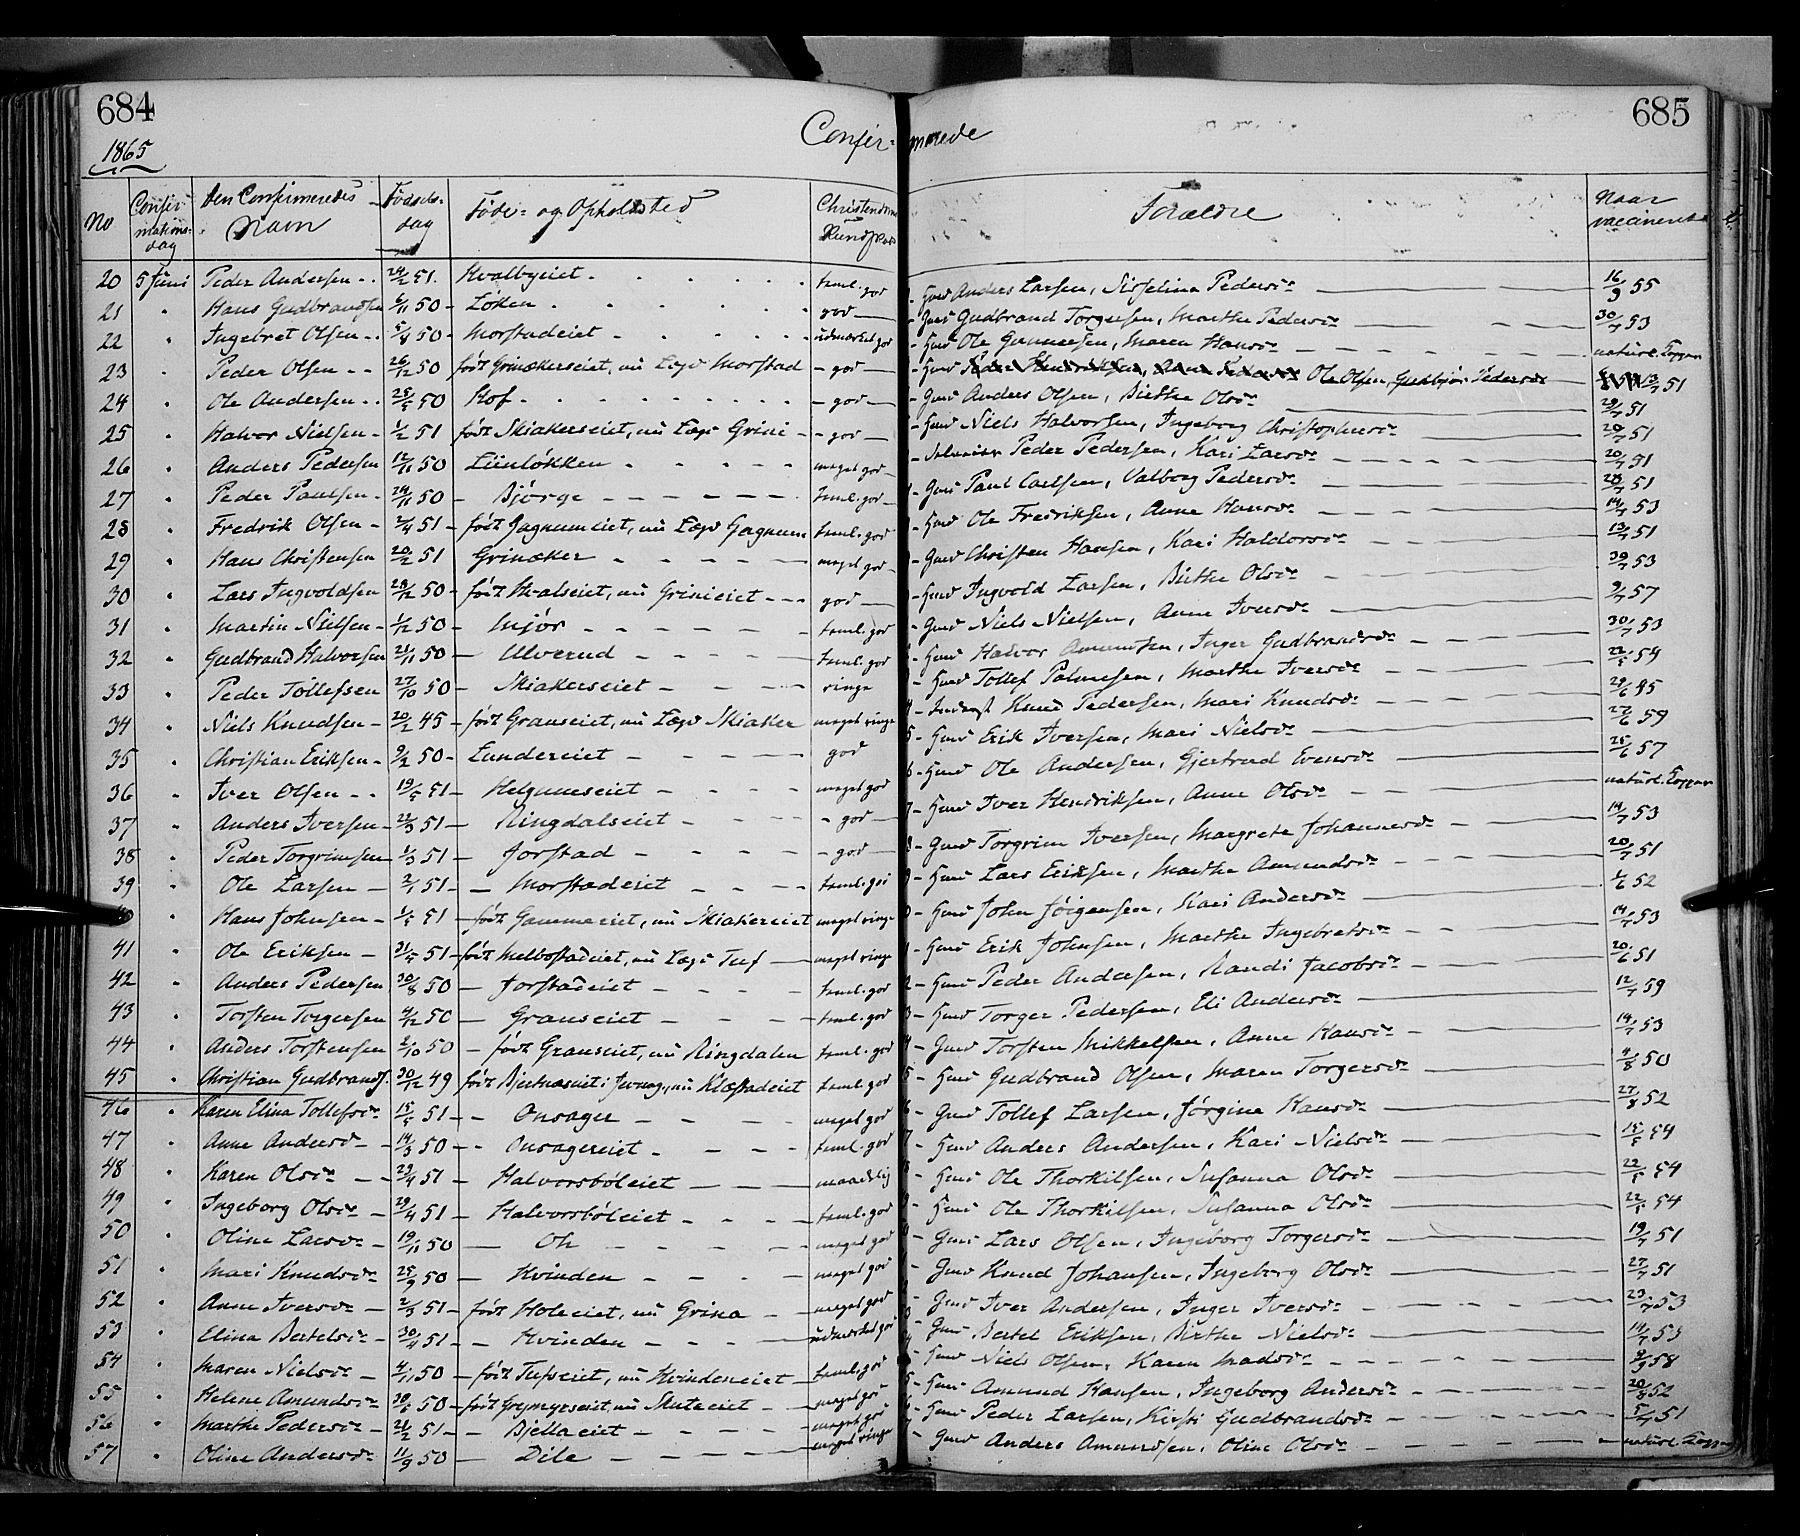 684 685
1865 Confirmerede
No Confirmationsdag Den Confirmeredes Navn Fødselsdag Føde- og Opholdsted Christendoms Kundskab Forældre Naar vaccineret
20 5 Juni Peder Andersen 24/2 51. Hvalbyeiet toml. god Hmd Anders Larsen, Pedersdr 16/9 55
21 " Hans Gudbrandsen 6/11 50 Løken god Gmd Gudbrand Torgersen, Marthe Pedersdr 30/7 53
22 " Ingebret Olsen 5/8 50 Morstadeiet udmærket god Hmd Ole Gunnersen, Maren Hansdr naturl. Kopper
23 " Peder Olsen 26/12 50 født Grinakerseiet, nu Lægd Morstad god Hmd Ole Olsen, Gudbjør Pedersdr 13/7 51
24 " Ole Andersen 25/5 50 Hof god Gmd Anders Olsen, Birthe Olsdr 29/7 51
25 " Halvor Nielsen 1/2 51 født Skiakerseiet, nu Lægd Grini god Hmd Niels Halvorsen, Ingeborg Christophersdr 20/7 51
26 " Anders Pedersen 12/11 50 Lünløkken meget god Peder Pedersen, Kari Larsdr 20/7 51
27 " Peder Paulsen 24/11 50 Bjørge toml. god Gmd Paul Carlsen, Valborg Pedersdr 28/7 51
28 " Fredrik Olsen 2/4 51 født Gagnumeiet, nu Lægd Gagnum toml. god Hmd Ole Fredriksen, Anne Hansdr 14/7 53
29 " Hans Christensen 20/2 51 Grinaker meget god Gmd Christen Hansen, Kari Haldorsdr 13/7 51
30 " Lars Ingvoldsen 28/12 50 født Hvalseiet, nu Grinieiet god Hmd Ingvold Larsen, Birthe Olsdr 30/7 53
31 " Martin Nielsen 1/12 50 Mjør toml. god Gmd Niels Nielsen, Anne Iversdr 9/7 57
32 " Gudbrand Halvorsen 21/11 50 Ulverud toml. god Hmd Halvor Amundsen, Inger Gudbrandsdr 30/7 53
33 " Peder Tollefsen 27/10 50 Skiakerseiet ringe Hmd Tollef Palmesen, Marthe Iversdr 22/5 54
34 " Niels Knudsen 20/2 45 født Granseiet, nu Lægd Skiaker meget ringe Inderst Knud Pedersen, Mari Knudsdr 29/6 45
35 " Christian Eriksen 9/2 50 Lundereiet god Hmd Erik Iversen, Mari Nielsdr 27/6 59
36 " Iver Olsen 19/5 51 Helgumseiet meget god Hmd Ole Andersen, Gjertrud Evensdr 25/6 57
37 " Anders Iversen 22/3 51 Ringdalseiet god Hmd Iver Hendriksen, Anne Olsdr naturl. Kopper
38 " Peder Torgrimsen 1/3 51 Jorstad god Gmd Torgrim Iversen, Margrete Johannesdr 14/7 53
39 " Ole Larsen 2/1 51 Morstadeiet toml. god Hmd Lars Eriksen, Marthe Amundsdr 20/7 51
40 " Hans Johnsen 1/5 51 født Gammeeiet, nu Skiakereiet meget ringe Hmd John Jörgensen, Kari Andersdr 1/6 52
41 " Ole Eriksen 31/5 51 født Melbostadeiet, nu Lægd Tuf meget ringe Hmd Erik Johnsen, Marthe Ingebretsdr 14/7 53
42 " Anders Pedersen 30/8 50 Jorstadeiet toml. god Hmd Peder Andersen, Randi Jacobsdr 20/6 51
43 " Torsten Torgersen 4/12 50 Granseiet toml. god Hmd Torger Pedersen, Eli Andersdr 12/7 59
44 " Anders Torstensen 2/10 50 født Granseiet, nu Ringdalen toml. god Gmd Torsten Mikkelsen, Anne Hansdr 14/7 53
45 " Christian Gudbrands. 30/12 49 født Bjertnæseiet i Jevnag, nu Klæstadeiet toml. god Hmd Gudbrand Olsen, Maren Torgersdr 4/8 50
46 " Karen Elina Tollefsdr 15/5 51 Onsager meget god Gmd Tollef Larsen, Jørgine Hansdr 27/8 52
47 " Anne Andersd 14/3 50 Onsagereiet toml. god Hmd Anders Andersen, Kari Nielsdr 15/5 54
48 " Karen Olsdr 29/4 51 Halvorsbøleiet maadelig Hmd Ole Thorkilsen, Susanna Olsdr 22/5 54
49 " Ingeborg Olsdr 29/4 51 Halvorsbøleiet toml. god Hmd Ole Thorkilsen, Susanna Olsdr 22/5 54
50 " Oline Larsdr 19/11 50 Oh meget god Gmd Lars Olsen, Ingeborg Torgersdr 19/7 51
51 " Mari Knudsdr 25/9 50 Hvinden meget god Gmd Knud Johansen, Ingeborg Olsdr 27/7 51
52 " Anne Iversdr 2/3 51 født Holeeiet, nu Grina meget god Gmd Iver Andersen, Inger Iversdr 23/7 53
53 " Elina Bertelsdr 30/4 51 Hvinden udmærket god Gmd Bertel Eriksen, Birthe Nielsdr 14/7 53
54 " Maren Nielsdr 4/11 50 født Tufseiet, nu Hvindeneiet toml. god Hmd Niels Olsen, Karen Madsdr 9/9 58
55 " Helene Amundsdr 28/5 50 født nu Skuteeiet meget god Hmd Amund Hansen, Ingeborg Andersdr 20/8 52
56 " Marthe Pedersdr 21/2 51 Bjellaeiet meget god Hmd Peder Larsen, Kirsti Gudbrandsdr 5/7 51
57 " Oline Andersdr 11/9 50 Dile meget ringe Gmd Anders Amundsen, Oline Olsdr naturl. Kopper